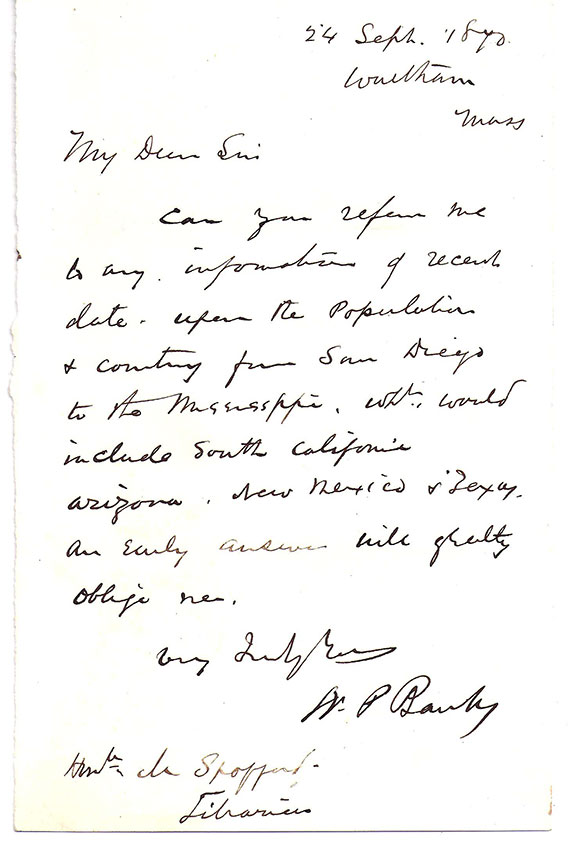 24 Sept. 1870.
Waltham
Mass
My Dear Sir
Can you refer me
to any information of recent
date. upon the Population
& country from San Diego
to the Mississippi. wh. would
include South California
Arizona. New Mexico & Texas.
An Early answer will greatly
oblige me.
Very Truly Yours
N. P. Banks
Honble Mr Spofford.
Librarian